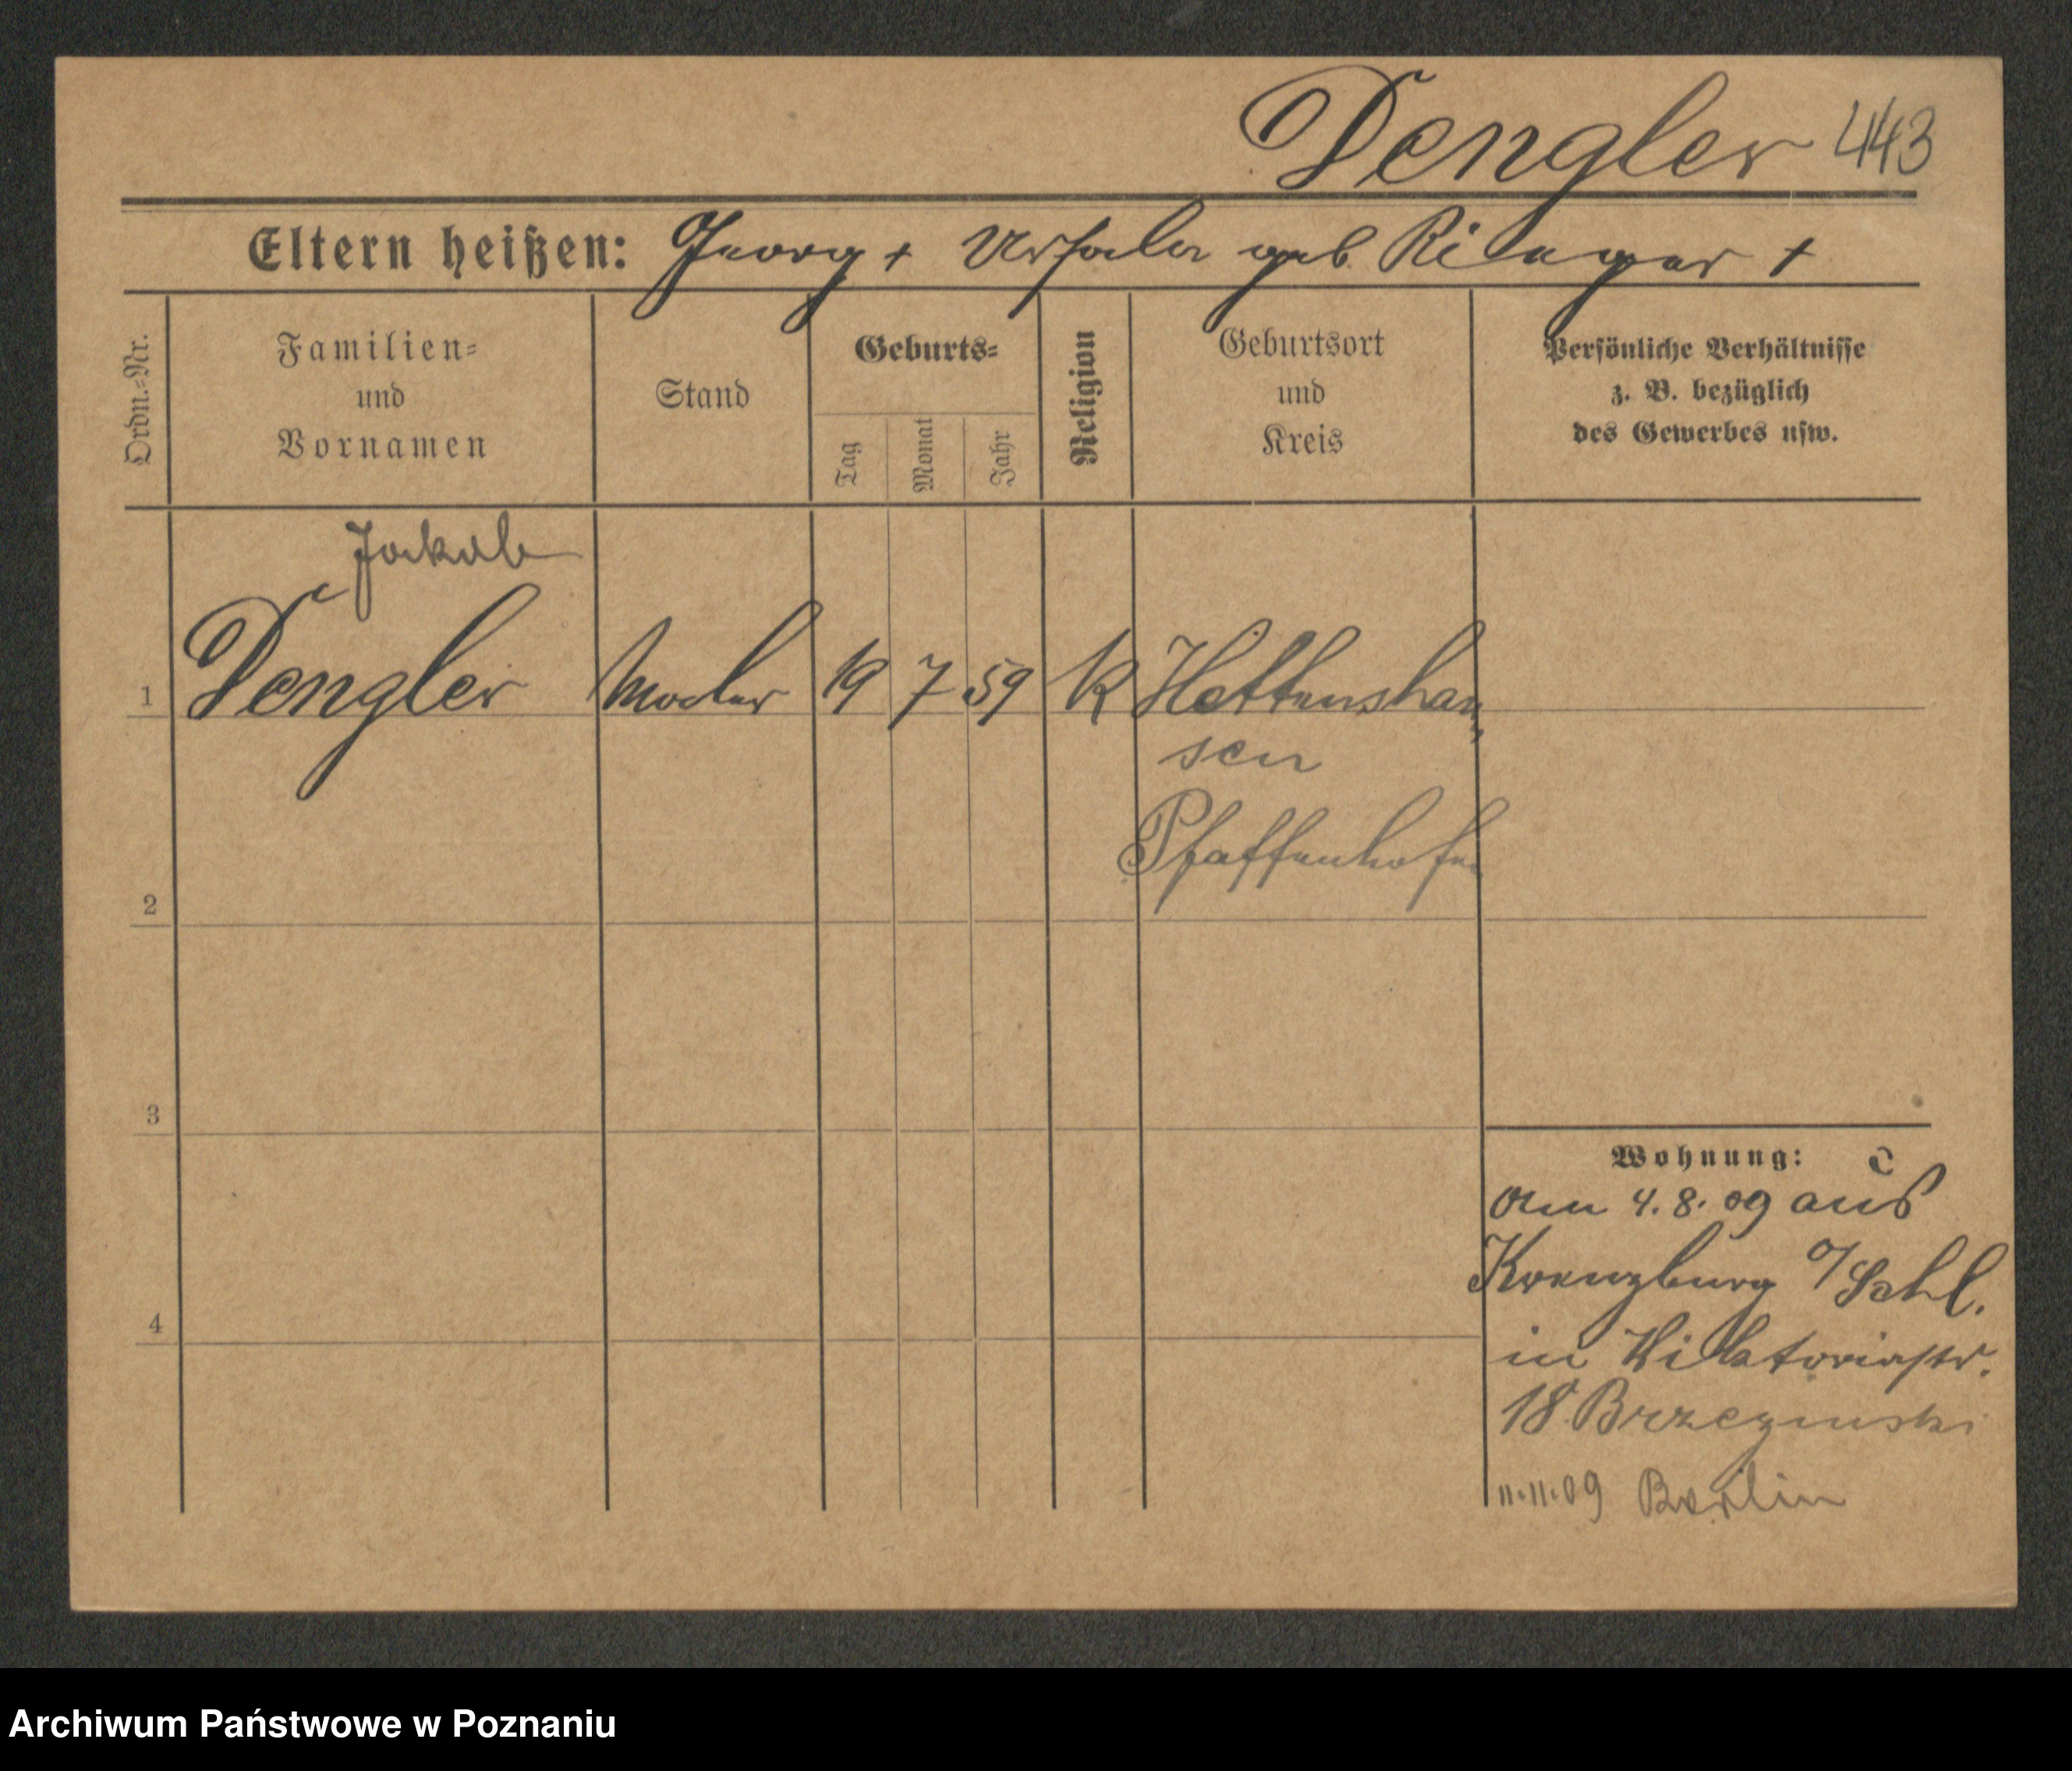 Dengler 443
Eltern heißen: Georg + Ursula geb. Rieger +
Ordn.=Nr.
Familien=
und
Vornamen
Stand
Geburts=
Tag
Monat
Jahr
Religion
Geburtsort
und
Kreis
Persönliche Verhältnisse
z. B. bezüglich
des Gewerbes usw.
Jakob
1 Dengler Maler 19 7 59 K Hettenshau„
sen
Pfaffenhofen
2
3
4
Wohnung:
Am 4.8.09 aus
Kreuzburg O/Schl.
in Viktoriastr.
18 Brzezinski
11.11.09 Berlin
Archiwum Państwowe w Poznaniu